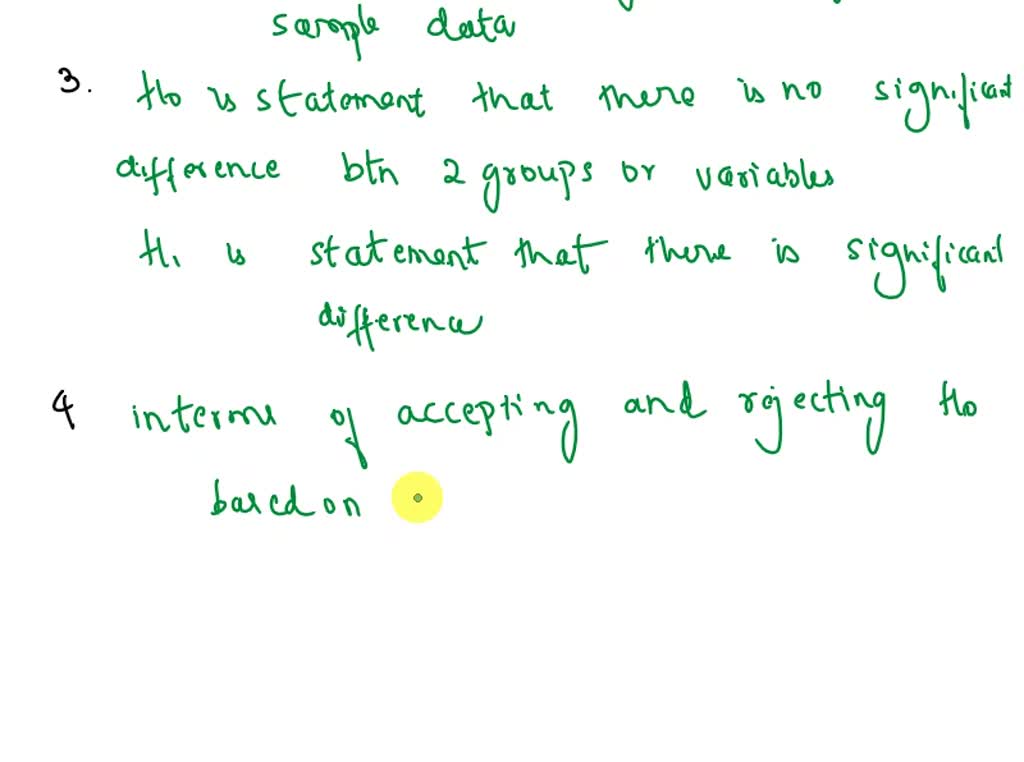 sample data
3. Ho is statement that there is no significant
difference btn 2 groups or variables
H1 is statement that there is significant
difference
4 interms of accepting and rejecting Ho
based on